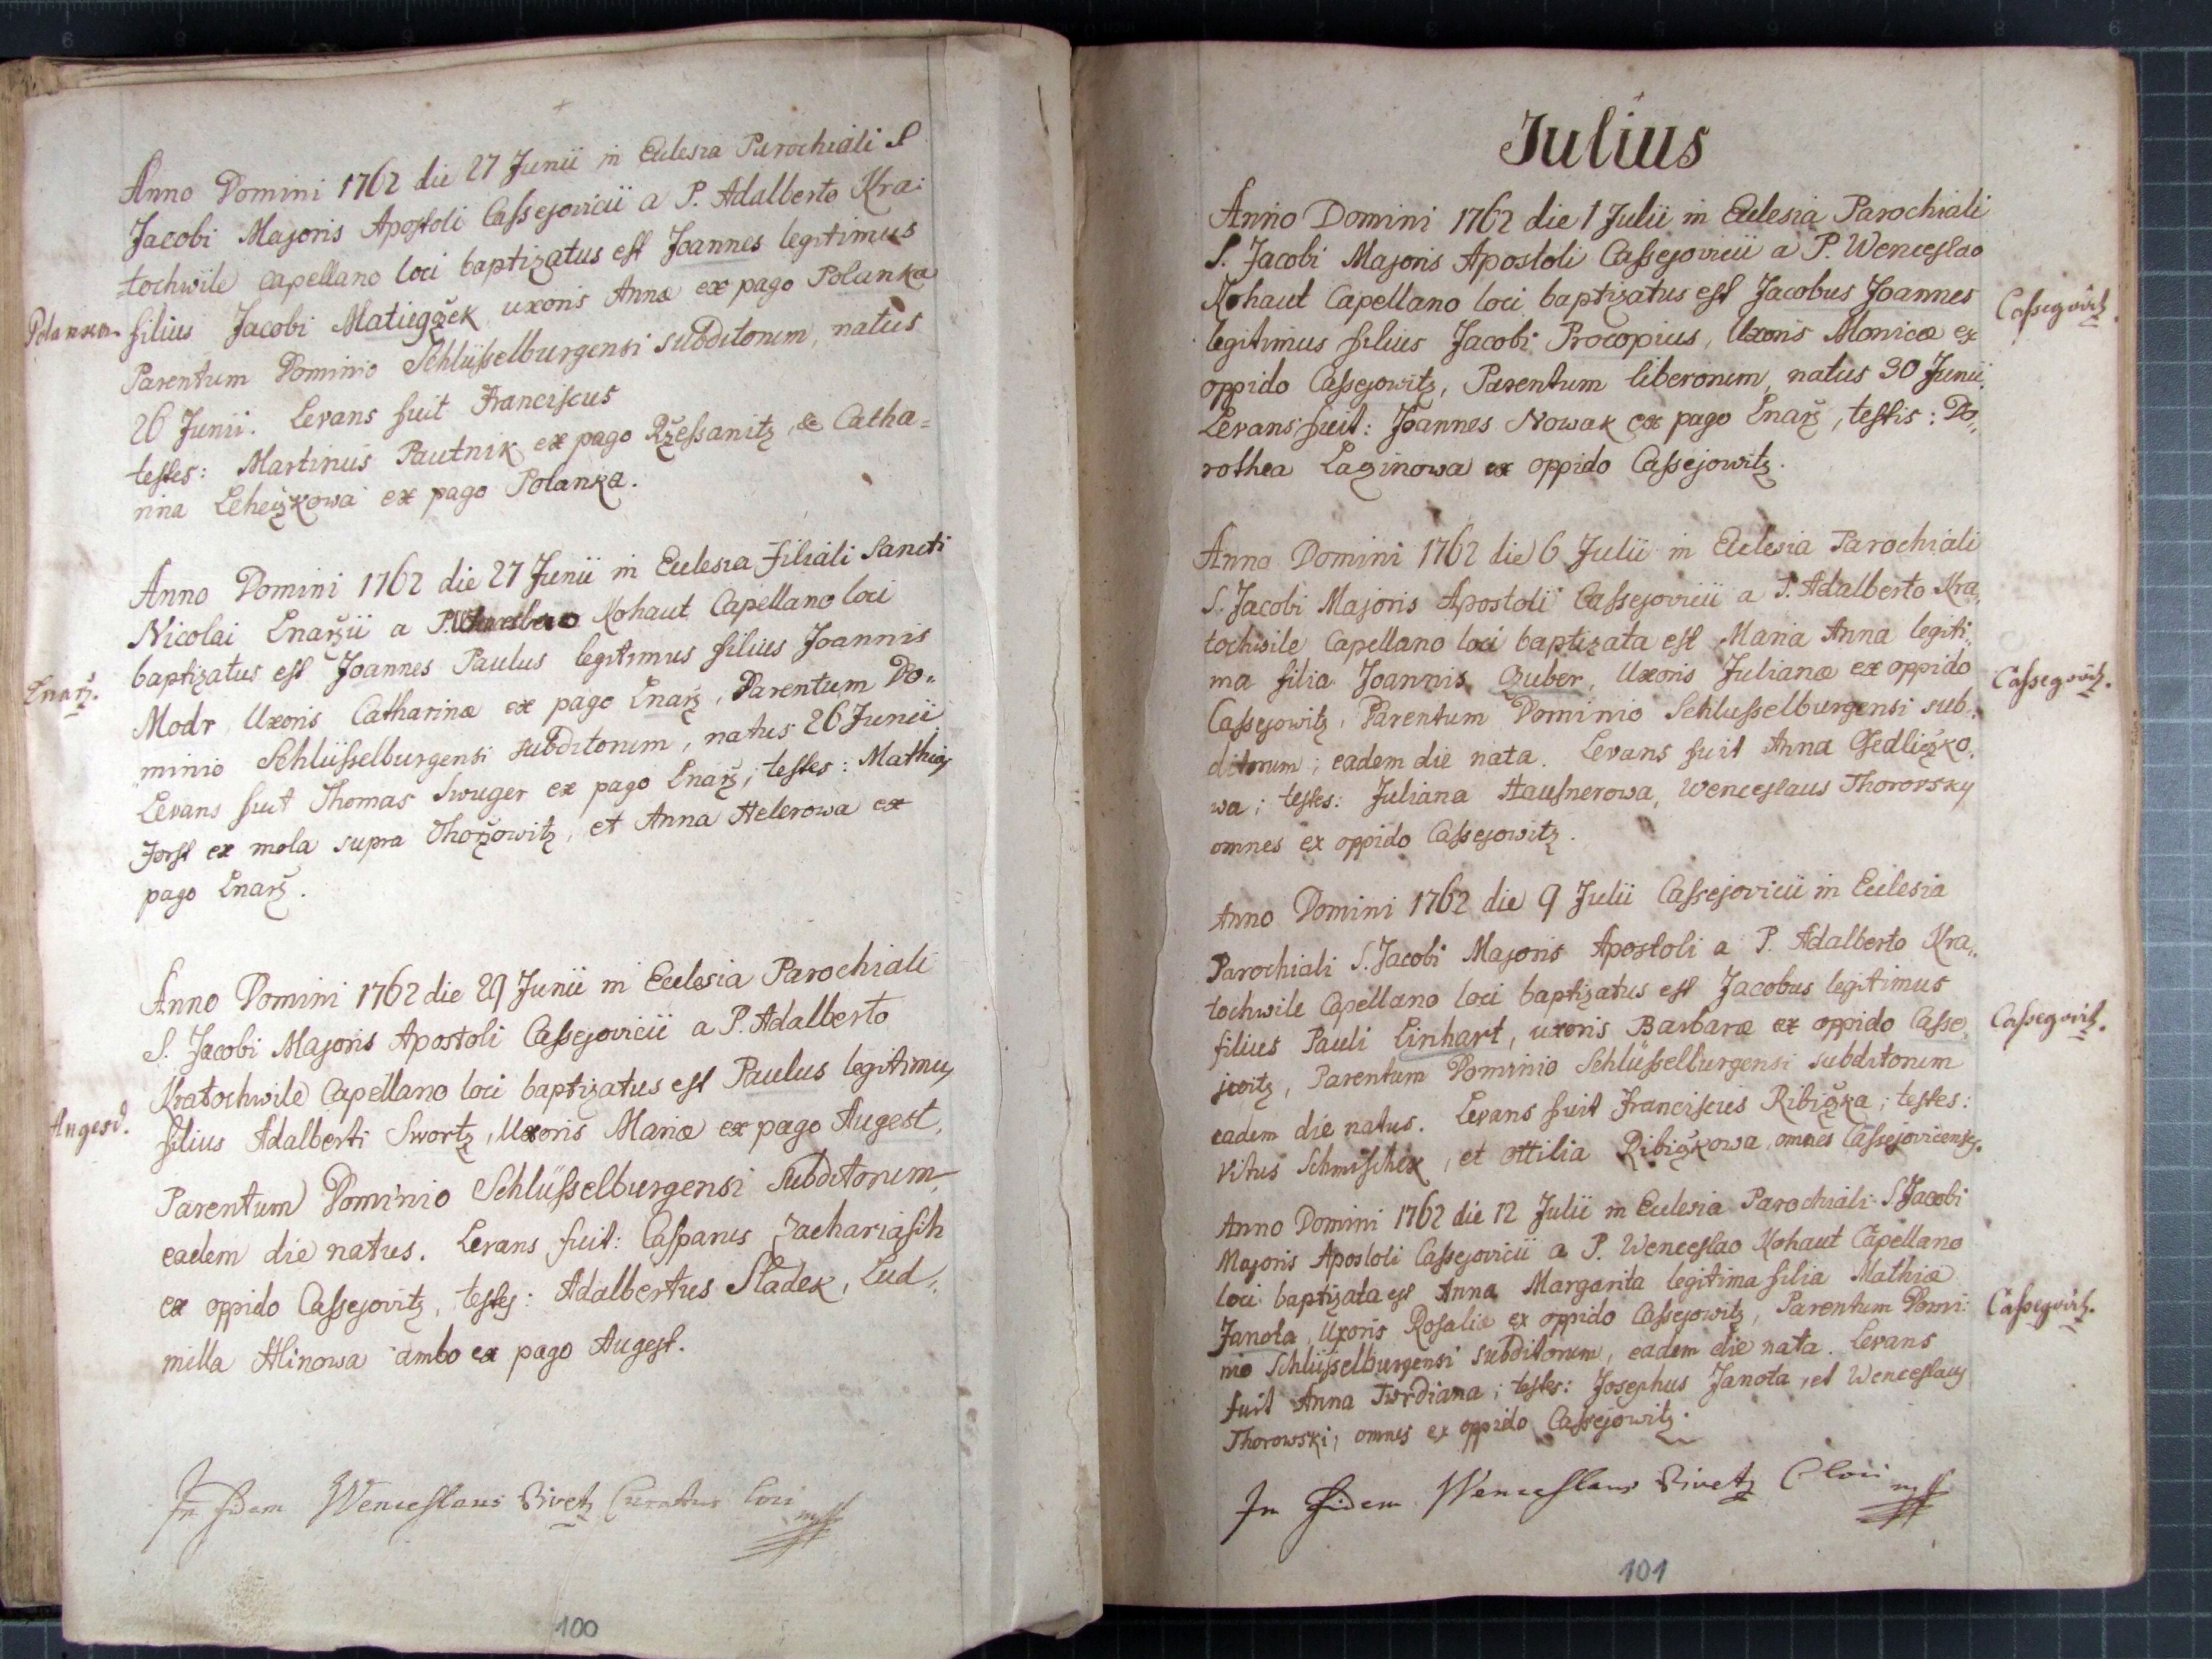 Anno Domini 1762 die 27 Junii in Eclesia Parochiali S
Jacobi Majoris Apostoli Cassejovicii a P. Adalberto Kra:
tochwile capellano loci baptizatus est Joannes legitimus
Polanka
filius Jacobi Matiegžek uxoris Annæ ex pago Polanka
Parentum Dominio Schlüsselburgensi subditorum, natus
26 Junii. Levans fuit Franciscus
testes: Martinus Pautnik ex pago Ržessanitz, & Catha=
rina Lehečzkowa ex pago Polanka.
Anno Domini 1762 die 27 Junii in Eclesia Filiali Sancti
Nicolai Lnaržii a P. Kohaut Capellano loci
baptizatus est Joannes Paulus legitimus filius Joannis
Lnarž.
Modr, Uxoris Catharinæ ex pago Lnarž, Parentum Do„
minio Schlüsselburgensi subditorum, natus 26 Junii
Levans fuit Thomas Swuger ex pago Lnarž; testes: Mathias
Forst ex mola supra Thoržowitz, et Anna Helerowa ex
pago Lnarž.
Anno Domini 1762 die 29 Junii in Eclesia Parochiali
S. Jacobi Majoris Apostoli Cassejovicii a P. Adalberto
Kratochwile Capellano loci baptizatus est Paulus legitimus
Augesd.
filius Adalberti Swortz, Uxoris Mariæ ex pago Augest,
Parentum Dominio Schlüsselburgensi subditorum,
eadem die natus. Levans fuit: Casparus Zachariasch
ex oppido Cassejovitz, testes: Adalbertus Sladek, Lud„
milla Hlinowa ambo ex pago Augest.
In fidem Wenceslaus Sivetz Curatus loci mpp
100
Julius
Anno Domini 1762 die 1 Julii in Eclesia Parochiali
S. Jacobi Majoris Apostoli Cassejovicii a P. Wenceslao
Kohaut Capellano loci baptizatus est Jacobus Joannes
Cassegovitz.
legitimus filius Jacobi Procopius, Uxoris Monicæ ex
oppido Cassejowitz, Parentum liberorum, natus 30 Junii.
Levans fuit: Joannes Nowak ex pago Lnarž, testis: Do„
rothea Lazinowa ex oppido Cassejowitz.
Anno Domini 1762 die 6 Julii in Eclesia Parochiali
S. Jacobi Majoris Apostoli Cassejovicii a P. Adalberto Kra„
tochwile Capellano loci baptizata est Maria Anna legiti„
ma filia Joannis Zuber, Uxoris Julianæ ex oppido
Cassegovitz.
Cassejowitz, Parentum Dominio Schlusselburgensi sub„
ditorum; eadem die nata. Levans fuit Anna Gedličzko„
wa; testes: Juliana Hausnerowa, Wenceslaus Thorovsky
omnes ex oppido Cassejowitz.
Anno Domini 1762 die 9 Julii Cassejovicii in Eclesia
Parochiali S. Jacobi Majoris Apostoli a P. Adalberto Kra„
tochwile Capellano loci baptizatus est Jacobus legitimus
filius Pauli Linhart, uxoris Barbaræ ex oppido Casse„
Cassegovitz.
jwitz, Parentum Dominio Schlüsselburgensi subditorum
eadem die natus. Levans fuit Franciscus Ribičzka; testes:
Vitus Schmischek, et Ottilia Ribičzkowa, omnes Cassejovicenses.
Anno Domini 1762 die 12 Julii in Eclesia Parochiali S. Jacobi
Majoris Apostoli Cassejovicii a P. Wenceslao Kohaut Capellano
loci baptizata est Anna Margarita legitima filia Mathiæ
Cassegovitz.
Janota, Uxoris Rosaliæ ex oppido Cassejowitz, Parentum Domi:
nio Schlüsselburgensi subditorum, eadem die nata. Levans
fuit Anna Twrdiana; testes: Josephus Janota, et Wenceslaus
Thorowski; omnes ex oppido Cassejowitz.
In fidem Wenceslaus Sivetz C loci mpp
101